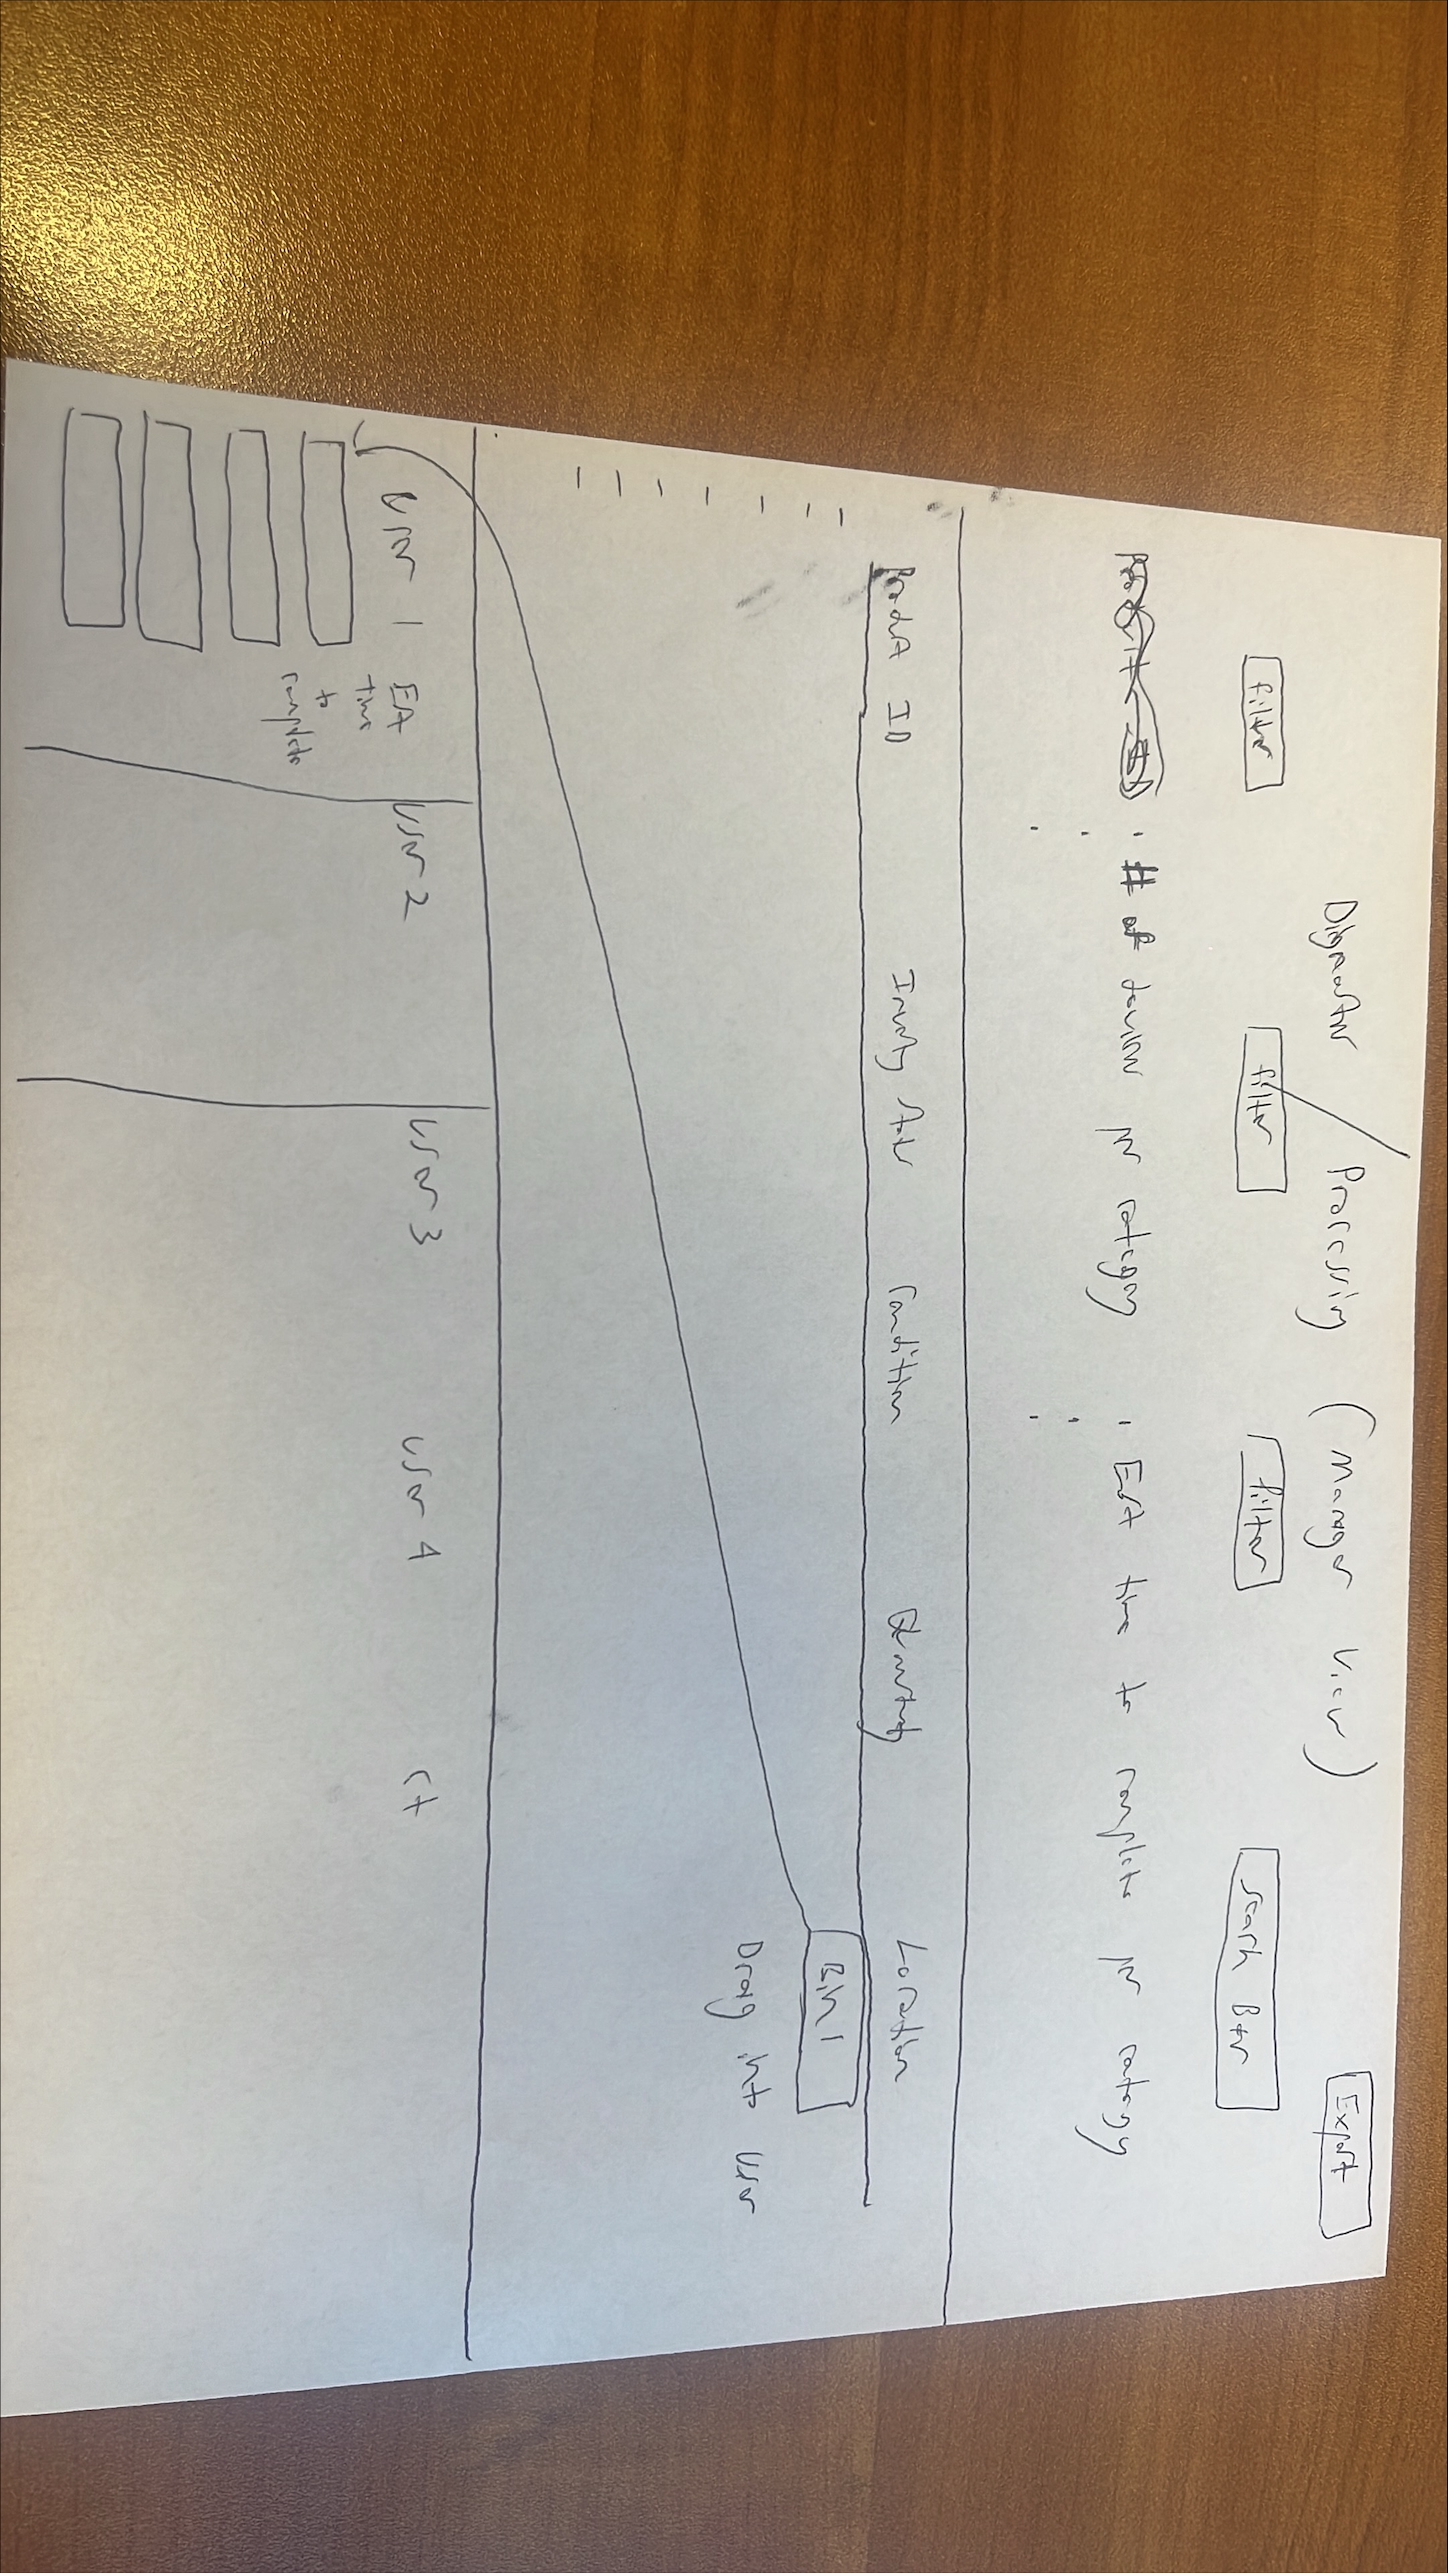 Diagnostic / Processing (Manager View)
Export
filter
filter
filter
Search Bar
# of devices per category
Est time to complete per category
Product ID
Condition
Quantity
Location
Bin 1
Drag into User
User 1
Est
time
to
complete
User 2
User 3
User 4